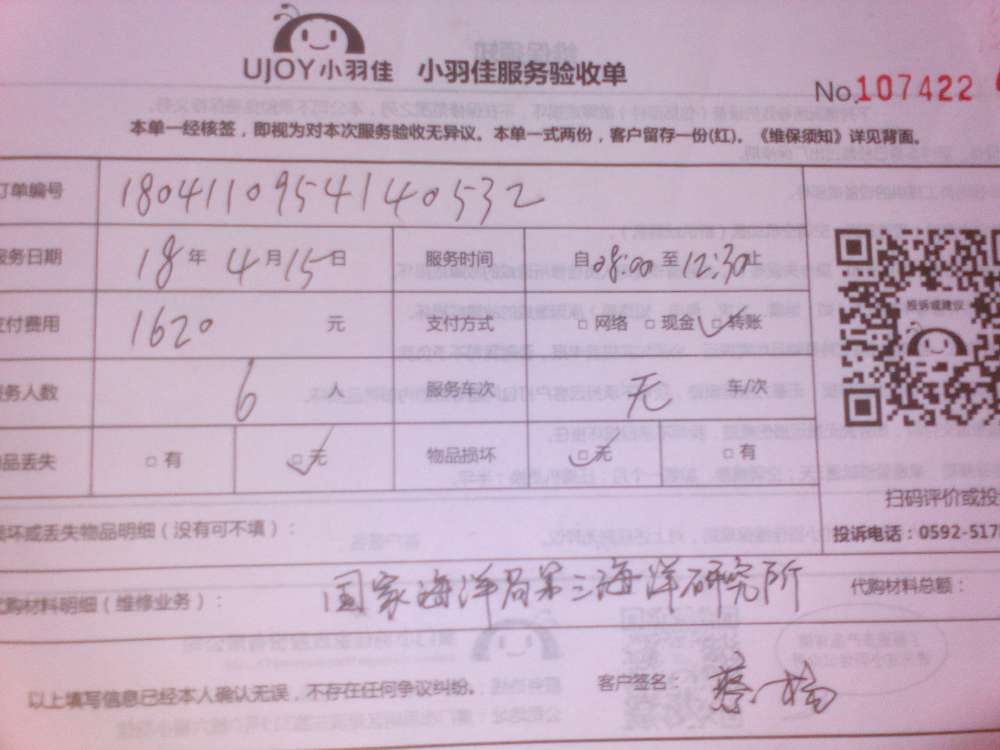 UJOY小羽佳 小羽佳服务验收单
No.107422
本单一经核签，即视为对本次服务验收无异议。本单一式两份，客户留存一份(红)。《维保须知》详见背面。
订单编号 180411095414 0532
服务日期 18年4月15日 服务时间 自08:00至12:30止
支付费用 1620 元 支付方式 □网络 □现金 □转账
服务人数 6 人 服务车次 无 车/次
物品丢失 □有 □无 物品损坏 □无 □有
投诉或建议
扫码评价或投
损坏或丢失物品明细（没有可不填）：
投诉电话：0592-517
代购材料明细（维修业务）： 国家海洋局第三海洋研究所 代购材料总额：
以上填写信息已经本人确认无误，不存在任何争议纠纷。 客户签名：